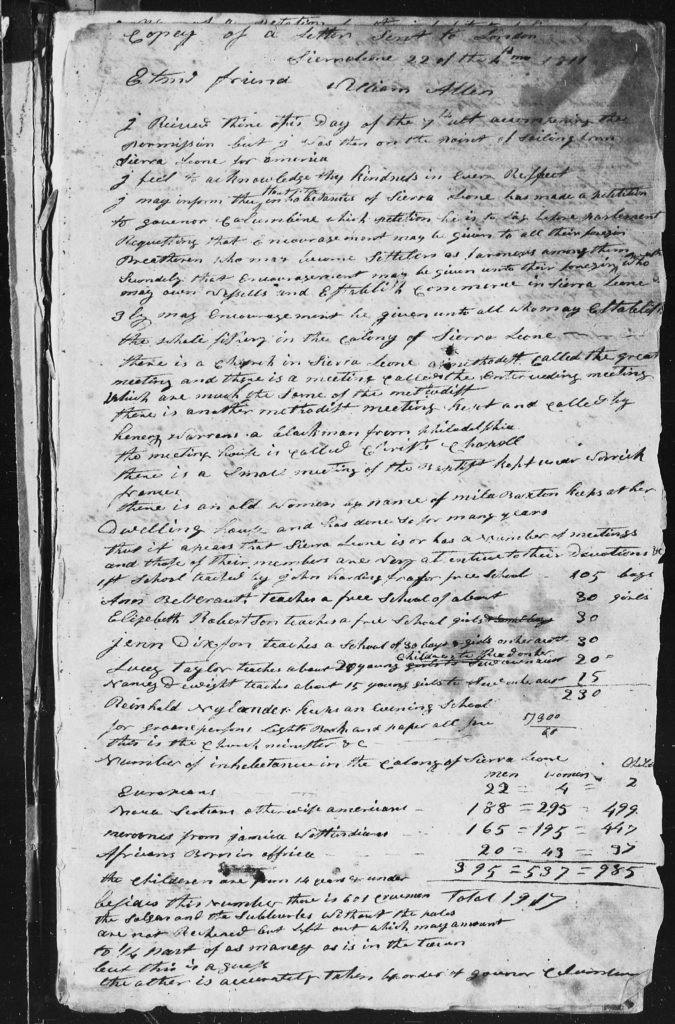 Copey of a Letter Sent to London
Sierraleone 22 of the 4 mo 1811
Estmd friend William Allen
J Recived thine of this Day of the 7th ult accompening the
Permission but J was then on the point of Sailing from
Sierra Leone for america
J feel to acknowledge thy kindness in Every Respect
J may inform thee that the inhabetants of Sierra Leone has made a Petition
to govenor Columbine which petition he is to lay before Parlement
Requesting that Encouragement may be given to all their foregin
Breatheren who may become Settelers as farmers among them
Secondely that Encouragement may be given unto their foregin who
may own vessells and Establish Commerce in Sierra Leone
3 ly may Encouragement be given unto all who may Establish
the whale fishery in the Colony of Sierra Leone
there is a Church in Sierra Leone a methodist Called the great
meeting and there is a meeting Called the
which are much the Same of the methodist
there is another methodist meeting kept and called by
henery Warrens a Blackman from Philadelphia
the meeting house is Called Chapell
there is a Small meeting of the Baptist kept under Warrick
francis
there is an old Women by name of mila Baxton keeps at her
Dwelling house and has done So for many years
thus it apears that Sierra Leone is or has a Number of meetings
and those of their members are very atentive to their Devotions &c
1st School teached by John harding free School 105 boys
Ann teaches a free School of about 30 girls
Elizabeth Robertson teaches a free School girls 30
Jenn Dixson teaches a School of 30 boys & girls on her acct 30
Lucey Taylor teaches about 20 young Children 20
Nancy Dwight teaches about 15 young girls 15
230
Reinhold Nylander keeps an Evening School
for groane persons Lights Book and paper all free
this is the Church minister &c
Number of inhabetance in the Colony of Sierra Leone
men women
Europians 22 = 4 = 2
Nova Scotians otherwise americans 188 = 295 = 499
meroones from jamica Westindians 165 = 195 = 447
Affricans Born in affrica 20 = 43 = 37
395 = 537 = 985
the Children are from 14 years & under
besides this Number there is 601 Croemen Total 1917
the and the Suburbs without the
are not Reckoned but left out which may amount
to 1/4 part of as maney as is in the town
but this is a guess
the other is accurately taken by order of govenor Columbine